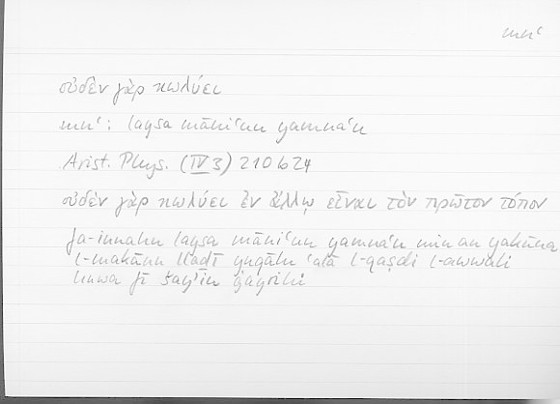 mnʿ
οὐδὲν γὰρ κωλύει
mnʿ: laysa māniʿun yamnaʿu
Arist. Phys. (IV 3) 210b24
οὐδὲν γὰρ κωλύει ἐν ἄλλῳ εἶναι τὸν πρῶτον τόπον
fa-innahu laysa māniʿun yamnaʿu min an yakūna
l-makānu lladī yuqālu ʿalā l-qaṣdi l-awwali
huwa fī šayʾin ġayrihi